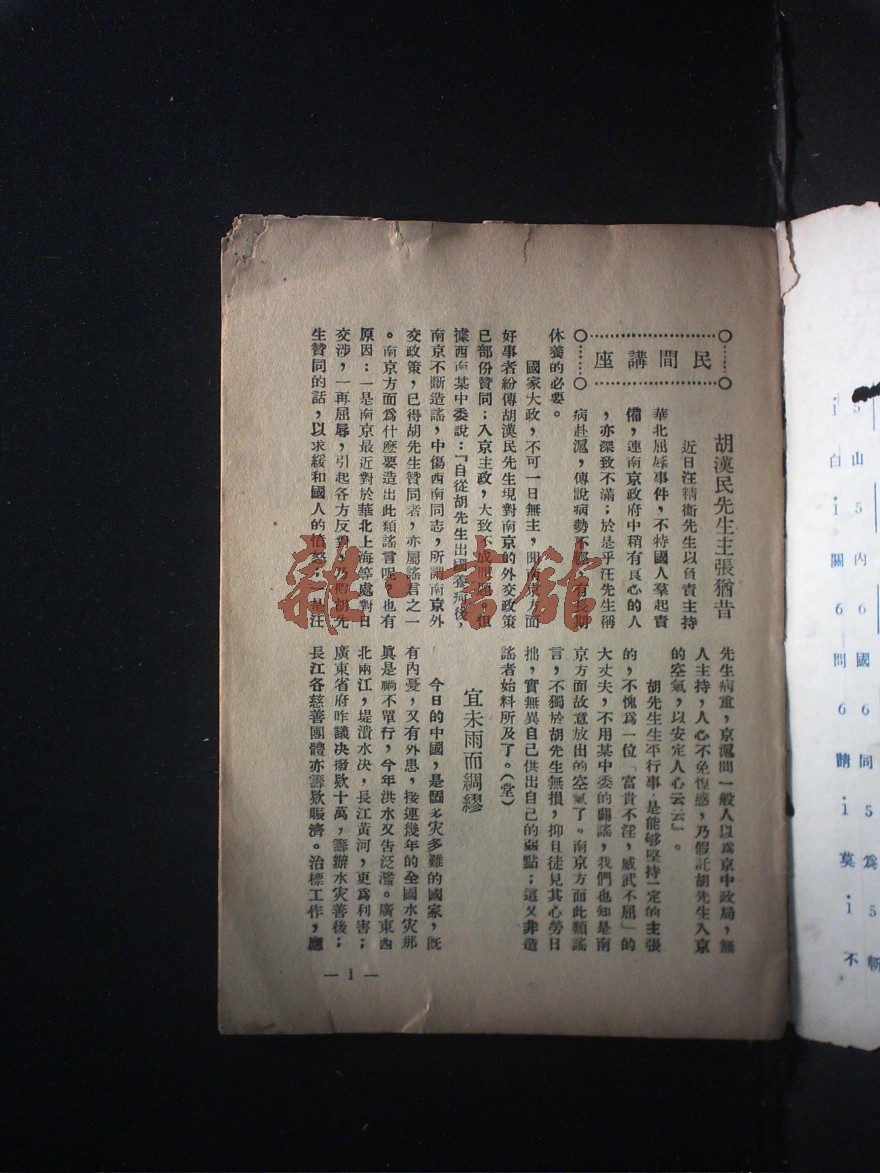 民間講座
胡漢民先生主張猶昔
近日汪精衛先生以負責主持
華北屈辱事件，不特國人羣起責
備，連南京政府中稍有良心的人
，亦深致不滿；於是乎汪先生稱
病赴滬，傳說病勢不
有長期
休養的必要。
國家大政，不可一日無主，聞南京方面
好事者紛傳胡漢民先生現對南京的外交政策
已部份贊同；入京主政，大致不成問題。但
據西南某中委說：「自從胡先生出國養病後，
南京不斷造謠，中傷西南同志，所謂南京外
交政策，已得胡先生贊同者，亦屬謠言之一
。南京方面爲什麼要造出此類謠言呢，也有
原因：一是南京最近對於華北上海等處對日
交涉，一再屈辱，引起各方反對，乃假胡先
生贊同的話，以求緩和國人的
是汪
先生病重，京滬間一般人以爲京中政局，無
人主持，人心不免惶惑，乃假託胡先生入京
的空氣，以安定人心云云」。
胡先生生平行事，是能够堅持一定的主張
的，不愧爲一位「富貴不淫，威武不屈」的
大丈夫，不用某中委的闢謠，我們也知是南
京方面故意放出的空氣了。南京方面此類謠
言，不獨於胡先生無損，抑且徒見其心勞日
拙，實無異自己供出自己的弱點；這又非造
謠者始料所及了。（堂）
宜未雨而綢繆
今日的中國，是個多灾多難的國家，旣
有內憂，又有外患，接連幾年的全國水灾那
眞是禍不單行，今年洪水又告泛濫。廣東西
北兩江，堤潰水決，長江黃河，更爲利害；
廣東省府昨議决撥欵十萬，籌辦水灾善後；
長江各慈善團體亦籌欵賑濟。治標工作，應
— 1 —
5 山 5 內 6 國 6 同 5 爲 5 斬
i 白 · i 關 6 問 6 請 · i 莫 · i 不
雜·書館